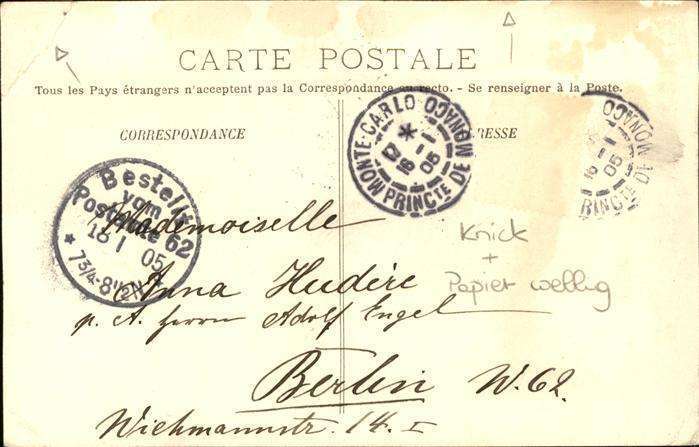 CARTE POSTALE
Tous les Pays étrangers n'acceptent pas la Correspondance au recto. - Se renseigner à la Poste.
CORRESPONDANCE
RESSE
MONTE-CARLO
*
12
16 - 1
05
PRINCTÉ DE MONACO
16 - 1
05
PRINCTÉ DE MONACO
Bestellt
vom
Postamte 62
18 1 05
* 7 3/4-8 1/2 N *
Mademoiselle
Anna Hudère
p. A. Herrn Adolf Engel
Berlin W.62.
Wichmannstr. 14. I
Knick
+
Papier wellig